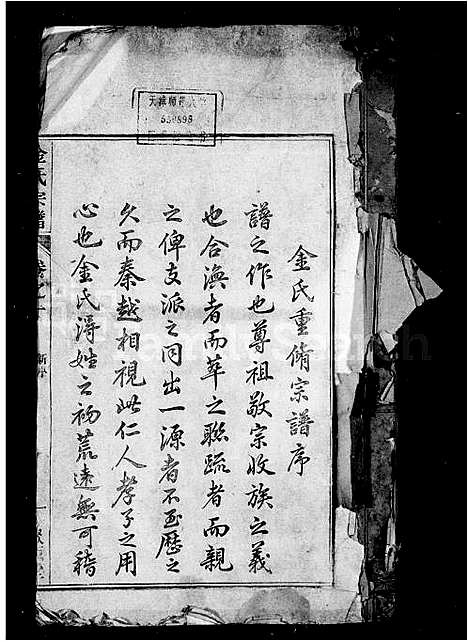 金氏重脩宗譜序
譜之作也尊祖敬宗收族之義
也合渙者而萃之聯疏者而親
之俾支派之同出一源者不至歷之
久而秦越相視此仁人孝子之用
心也金氏得姓之初荒遠無可稽
金氏宗譜
天津師範大
530898